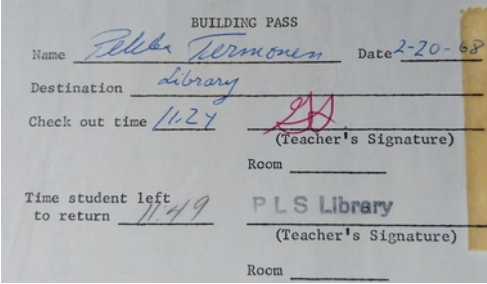 BUILDING PASS
Name Pekka Termonen Date 2-20-68
Destination Library
Check out time 11.24
(Teacher's Signature)
Room
Time student left
to return 11:49 PLS Library
(Teacher's Signature)
Room